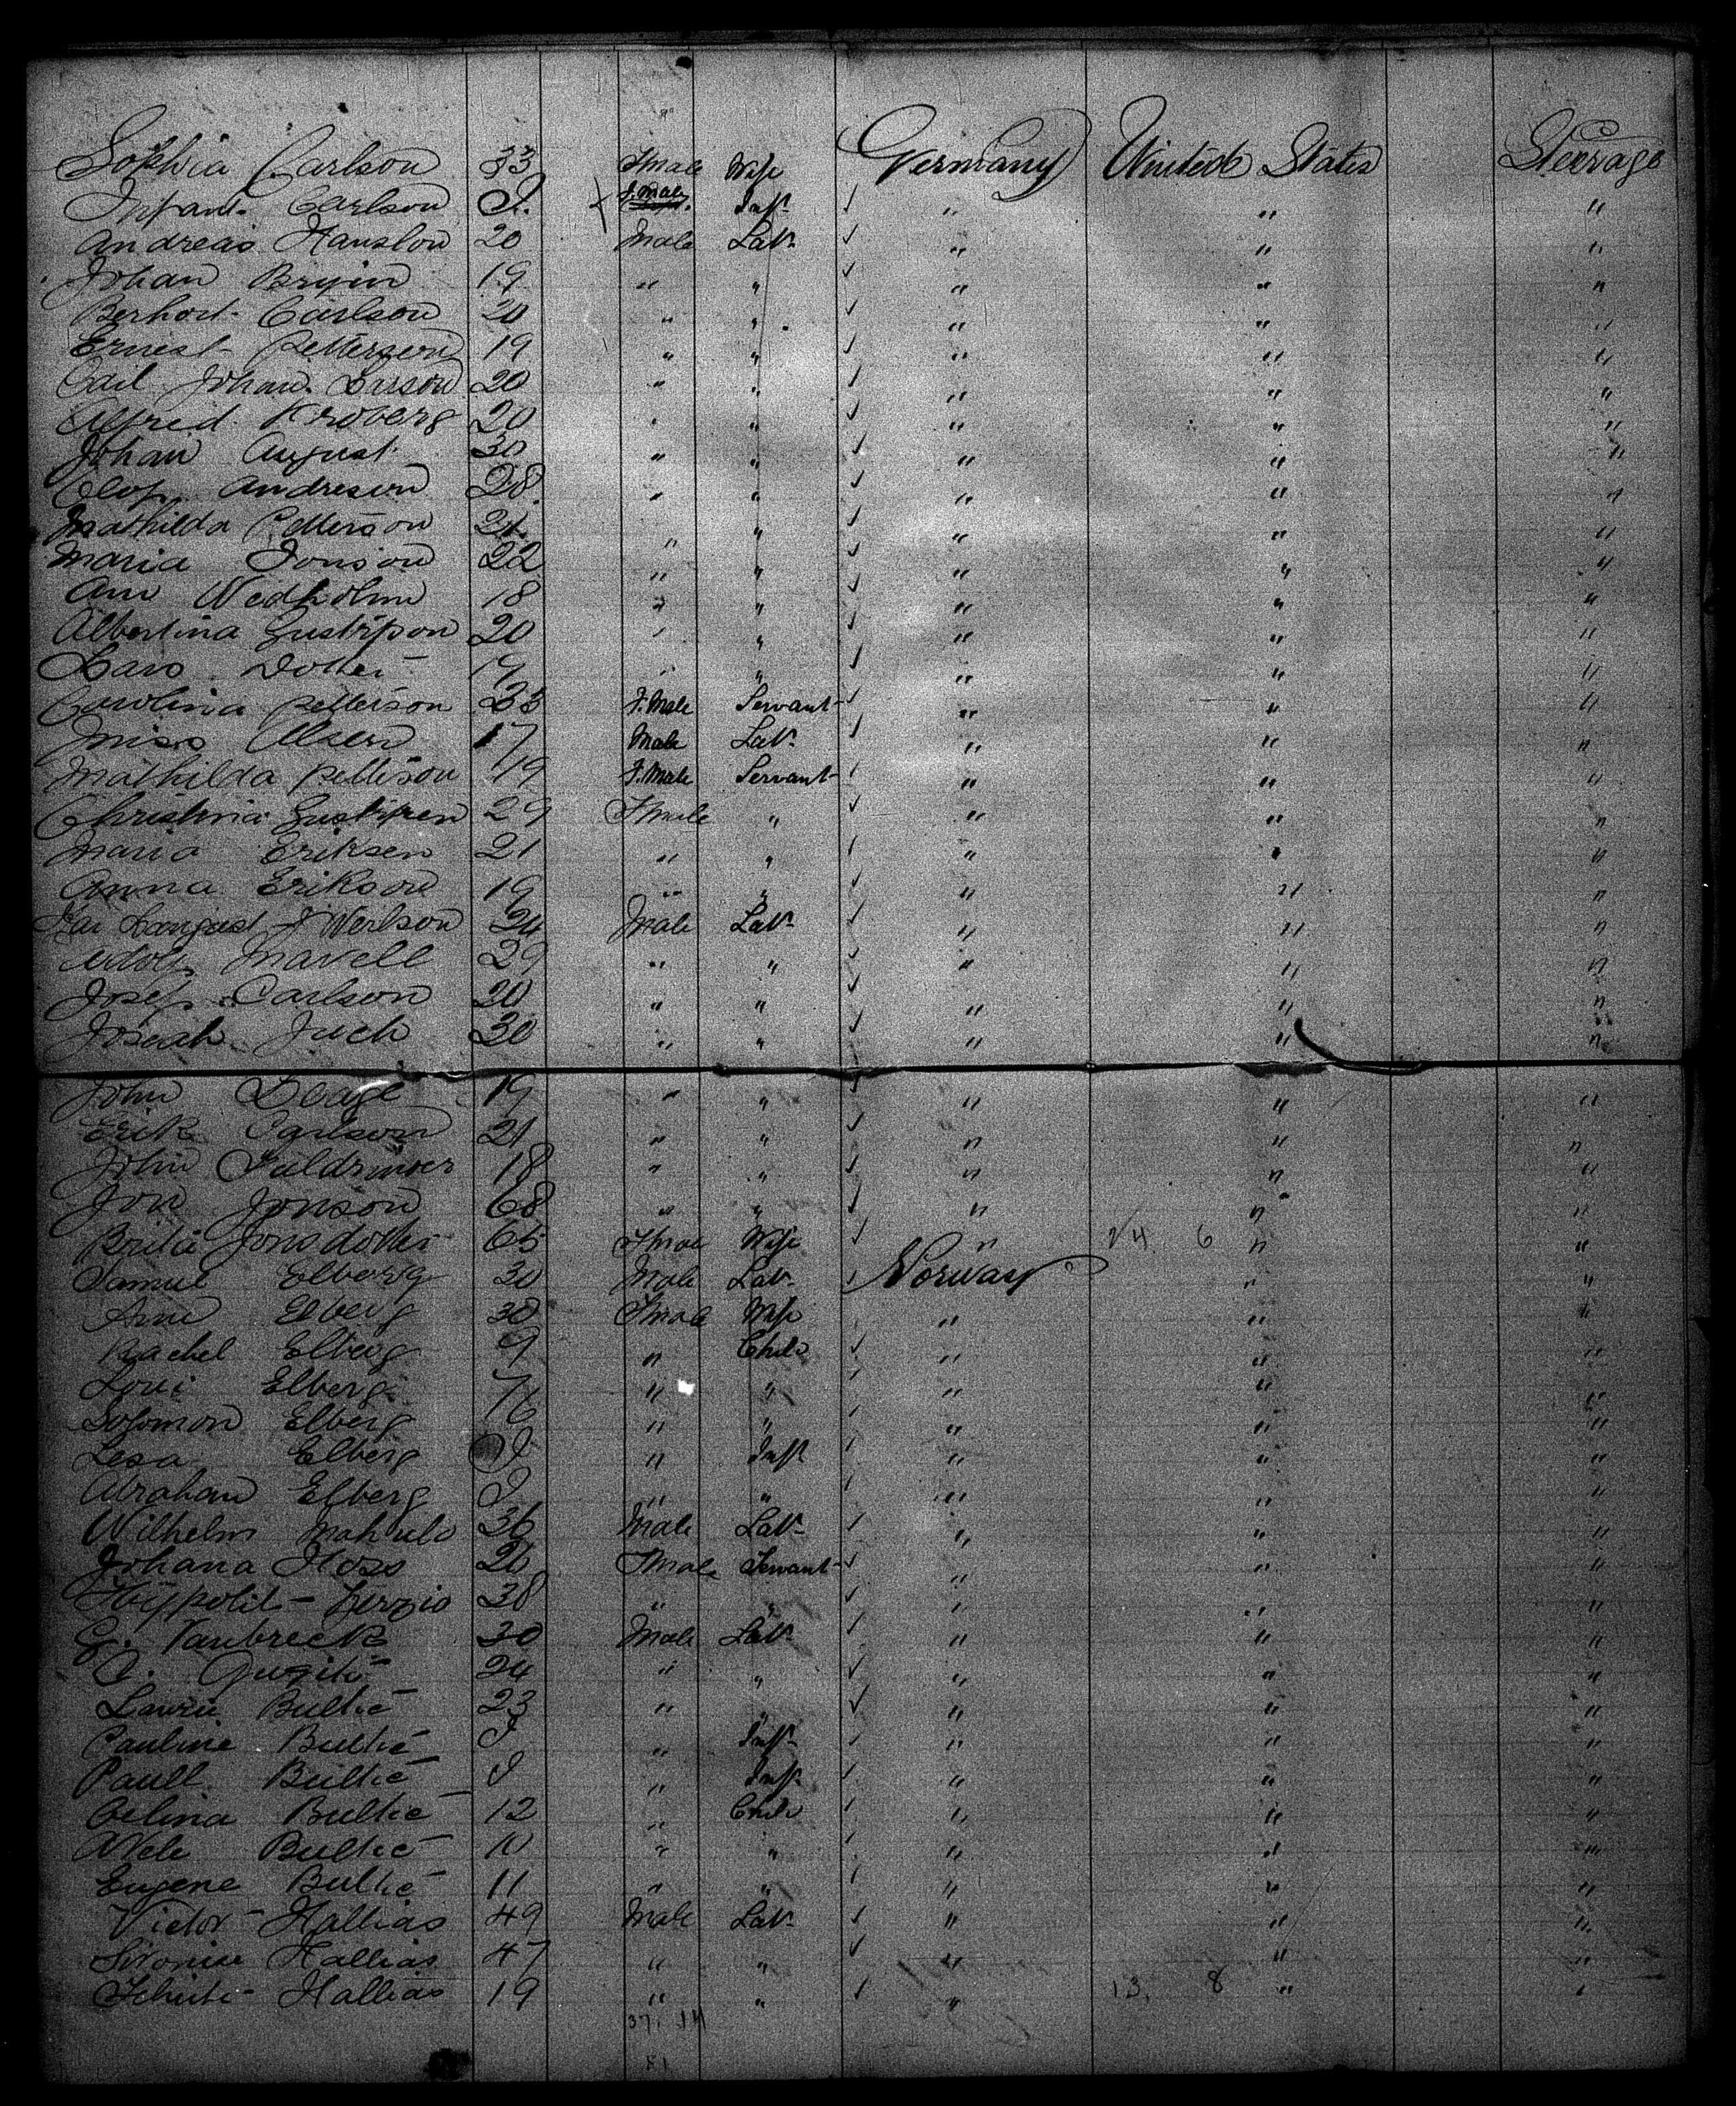 Sophia Carlson 33 Fmale Wife Germany United States Steerage
Infant Carlson I. F.male Inft " " "
Andreas Hanslon 20 Male Lab " " "
Johan Bryin 19 " " " " "
Berhart Carlson 20 " " " " "
Ernest Petterson 19 " " " " "
Carl Johan Larson 20 " " " " "
Alfred Kroberg 20 " " " " "
Johan August 30 " " " " "
Olof Andreson 28 " " " " "
Mathilda Petterson 21 " " " " "
Maria Jonson 22 " " " " "
Ann Wedholm 18 " " " " "
Albertina Gustafson 20 " " " " "
Lars Dotter 19 " " " " "
Carolina Petterson 23 F.Male Servant " " "
Miss Olsen 17 Male Lab " " "
Mathilda Petterson 19 F.Male Servant " " "
Christina 29 Fmale " " " "
Maria Eriksen 21 " " " " "
Anna Erikson 19 " " " " "
Werlson 24 Male Lab " " "
Adolf Mavell 29 " " " " "
Josef Carlson 20 " " " " "
Joseah Juch 30 " " " " "
John 19 " " " " "
Erik Carlson 21 " " " " "
John 18 " " " " "
Jon Jonson 68 " " " " "
Brita Jonsdotter 65 Fmal Wife " 24 6 " "
Samuel Elberg 30 Male Lab Norway " "
Ane Elberg 30 Fmale Wife " " "
Rachel Elberg 9 " Child " " "
Loui Elberg 7 " " " " "
Solomon Elberg 6 " " " " "
Lesa Elberg I " Inft " " "
Abraham Elberg I " " " " "
Wilhelm 36 Male Lab " " "
Johana Hoss 20 Fmale Servant " " "
Hyppolit 38 " " " " "
G. Vanbreck 30 Male Lab " " "
24 " " " " "
Laurie Bultié 23 " " " " "
Pauline Bultié I " Inft " " "
Paull Bultié I " Inft " " "
Celina Bultié 12 " Child " " "
Nele Bultié 10 " " " " "
Eugene Bultié 11 " " " " "
Victor Hallias 49 Male Lab " " "
Hallias 47 " " " " "
Hallias 19 " " " 13. 8 " "
37. 14